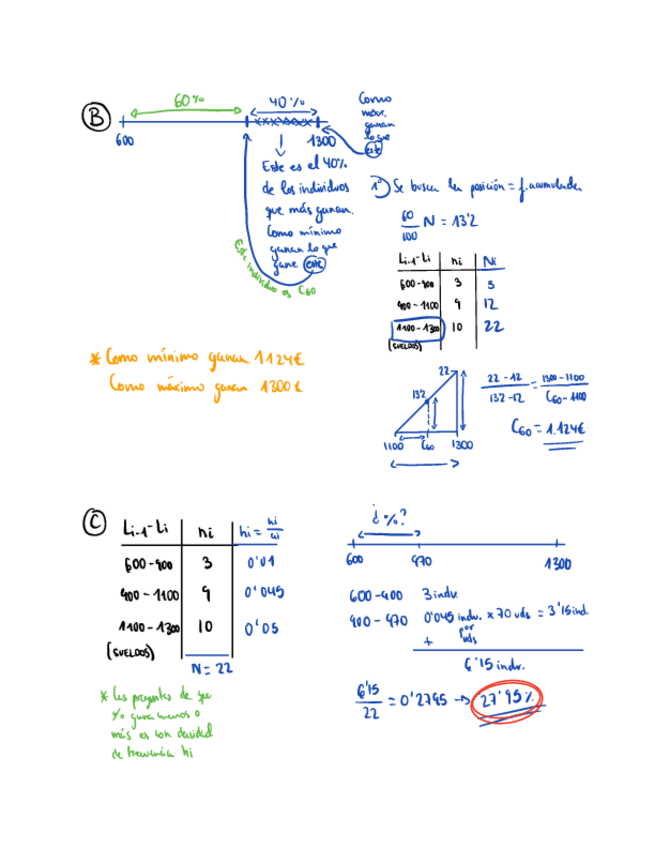 B
60% 40%
600 1300
Como
máx.
ganan
lo que
este
Este es el 40%
de los individuos
que más ganan.
Como mínimo
ganan lo que
gane este
Este individuo es C60
* Como mínimo ganan 1124€
Como máximo ganan 1300€
1º) Se busca la posición = f. acumulada
60/100 N = 13'2
Li-1-Li ni Ni
600-900 3 3
900-1100 9 12
1100-1300 10 22
(SUELDOS)
22
13'2
1100 C60 1300
22-12/13'2-12 = 1300-1100/C60-1100
C60 = 1.124€
C
Li-1-Li ni hi = ni/ai
600-900 3 0'01
900-1100 9 0'045
1100-1300 10 0'05
(SUELDOS)
N = 22
* Las preguntas de que
% gana menos o
más es con densidad
de frecuencia hi
¿%?
600 970 1300
600-900 3 indv.
900-970 0'045 indv. x 70 uds = 3'15 ind.
por
uds
+
6'15 indv.
6'15/22 = 0'2795 → 27'95%